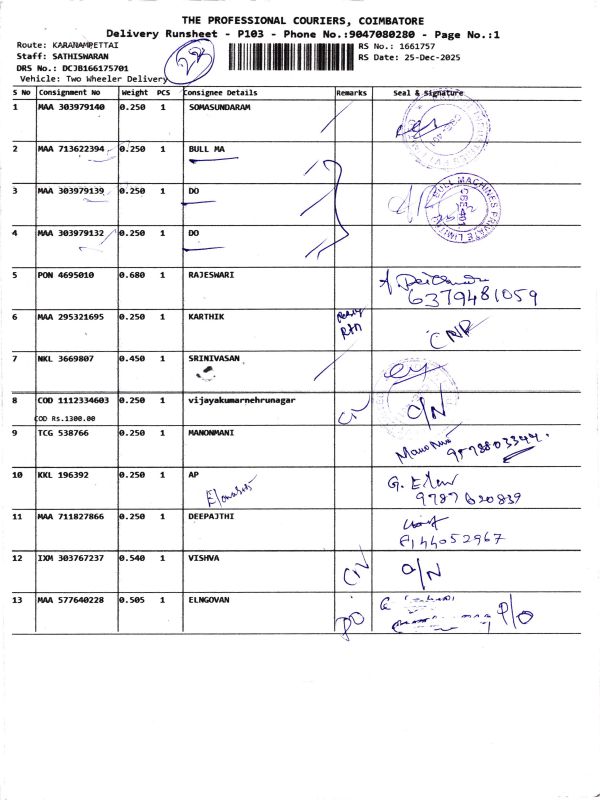 THE PROFESSIONAL COURIERS, COIMBATORE
Delivery Runsheet - P103 - Phone No.:9047080280 - Page No.:1
Route: KARANAMPETTAI
RS No.: 1661757
Staff: SATHISWARAN
RS Date: 25-Dec-2025
DRS No.: DCJB166175701
Vehicle: Two Wheeler Delivery
S No Consignment No Weight PCS Consignee Details Remarks Seal & Signature
1 MAA 303979140 0.250 1 SOMASUNDARAM
2 MAA 713622394 0.250 1 BULL MA
3 MAA 303979139 0.250 1 DO
BULL MACHINES PRIVATE LIMITED
CBE-401
4 MAA 303979132 0.250 1 DO
5 PON 4695010 0.680 1 RAJESWARI
6379481059
6 MAA 295321695 0.250 1 KARTHIK
CNR
7 NKL 3669807 0.450 1 SRINIVASAN
8 COD 1112334603 0.250 1 vijayakumarnehrunagar O/N
COD Rs.1300.00
9 TCG 538766 0.250 1 MANONMANI
9578803344
10 KKL 196392 0.250 1 AP
9787620839
11 MAA 711827866 0.250 1 DEEPAJTHI
12 IXM 303767237 0.540 1 VISHVA O/N
13 MAA 577640228 0.505 1 ELNGOVAN P/O